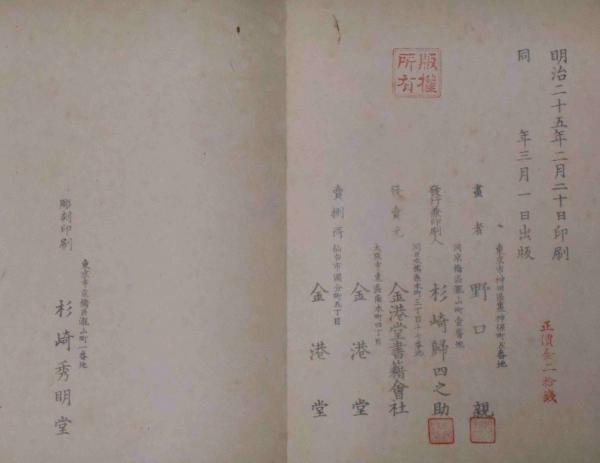 明治二十五年二月二十日印刷
同　年三月一日出版
正價金二拾錢
版權所有
東京市神田區裏神保町五番地
畫者　野口親
同京橋區瀧山町壹番地
發行兼印刷人　杉崎歸四之助
發賣元　金港堂書籍會社
大阪市東區南本町四丁目
金港堂
賣捌所　仙台市國分町五丁目
金港堂
彫刻印刷
東京市京橋區瀧山町一番地
杉崎秀明堂